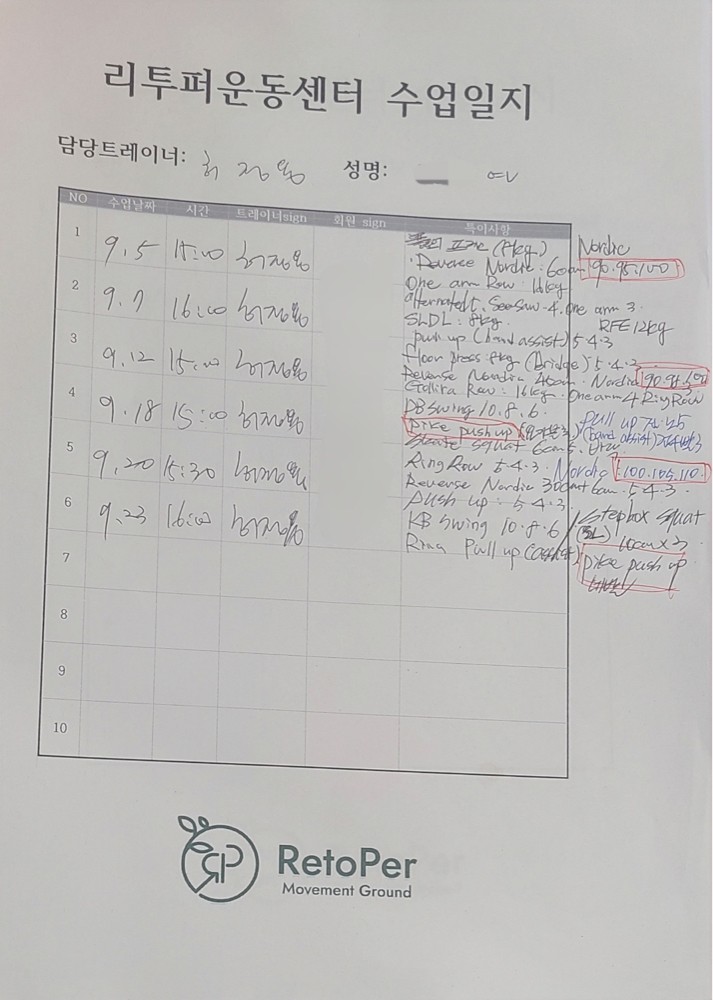 리투퍼운동센터 수업일지
담당트레이너: 허 성명:
NO 수업날짜 시간 트레이너sign 회원 sign 특이사항
1 9.5 15:00
(8kg) Nordic
Reverse Nordic: 60cm 90.95.100
One arm Row: 16kg
2 9.7 16:00
Seesaw 4. One arm 3.
SLDL: 8kg. RFE 12kg
push up (band assist) 5 4 3
3 9.12 15:00
Floor press: 8kg (Bridge) 5 4 3
Reverse Nordic 45cm. Nordic
Gorilla Row: 16kg. One arm 4 Ring Row
4 9.18 15:00
DB swing 10.8.6. Pull up
Pike push up (band assist)
squat 6cm 5.
5 9.20 15:30
Ring Row 5.4.3. Nordic 100.105.110.
Reverse Nordic 5.4.3.
6 9.23 16:00
push up: 5.4.3. Stepbox squat
KB swing 10.8.6 (SL) 10cm x 3
Ring Pull up (assist) Pike push up
7
8
9
10
RetoPer
Movement Ground